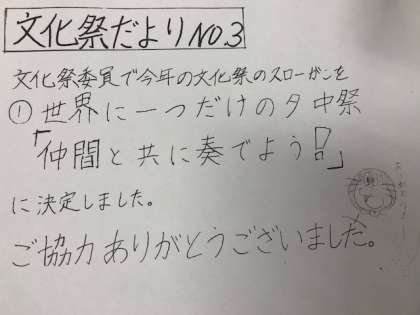 文化祭だより NO.3
文化祭委員で今年の文化祭のスローガンを
① 世界に一つだけの夕中祭
「仲間と共に奏でよう!」
に決定しました。
ご協力ありがとうございました。